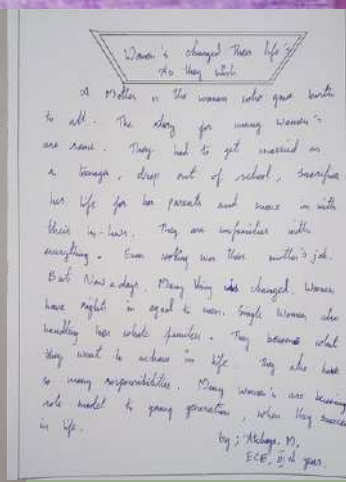 Women's changed Their life's
As they wish
A Mother is the woman who gave birth
to all. The story for many women's
are same. They had to get married as
a teenager, drop out of school, Sacrifice
her life for her parents and move in with
their in-laws. They are unfamiliar with
everything. Even cooking was their mother's job.
But Now a days, Many thing is changed. Women
have rights in equal to men. Single Women also
handling her whole families. They become what
they want to achieve in life. They also have
so many responsibilities. Many women's are becoming
role model to young generation, when they success
in life.
by;
ECE, III rd year.